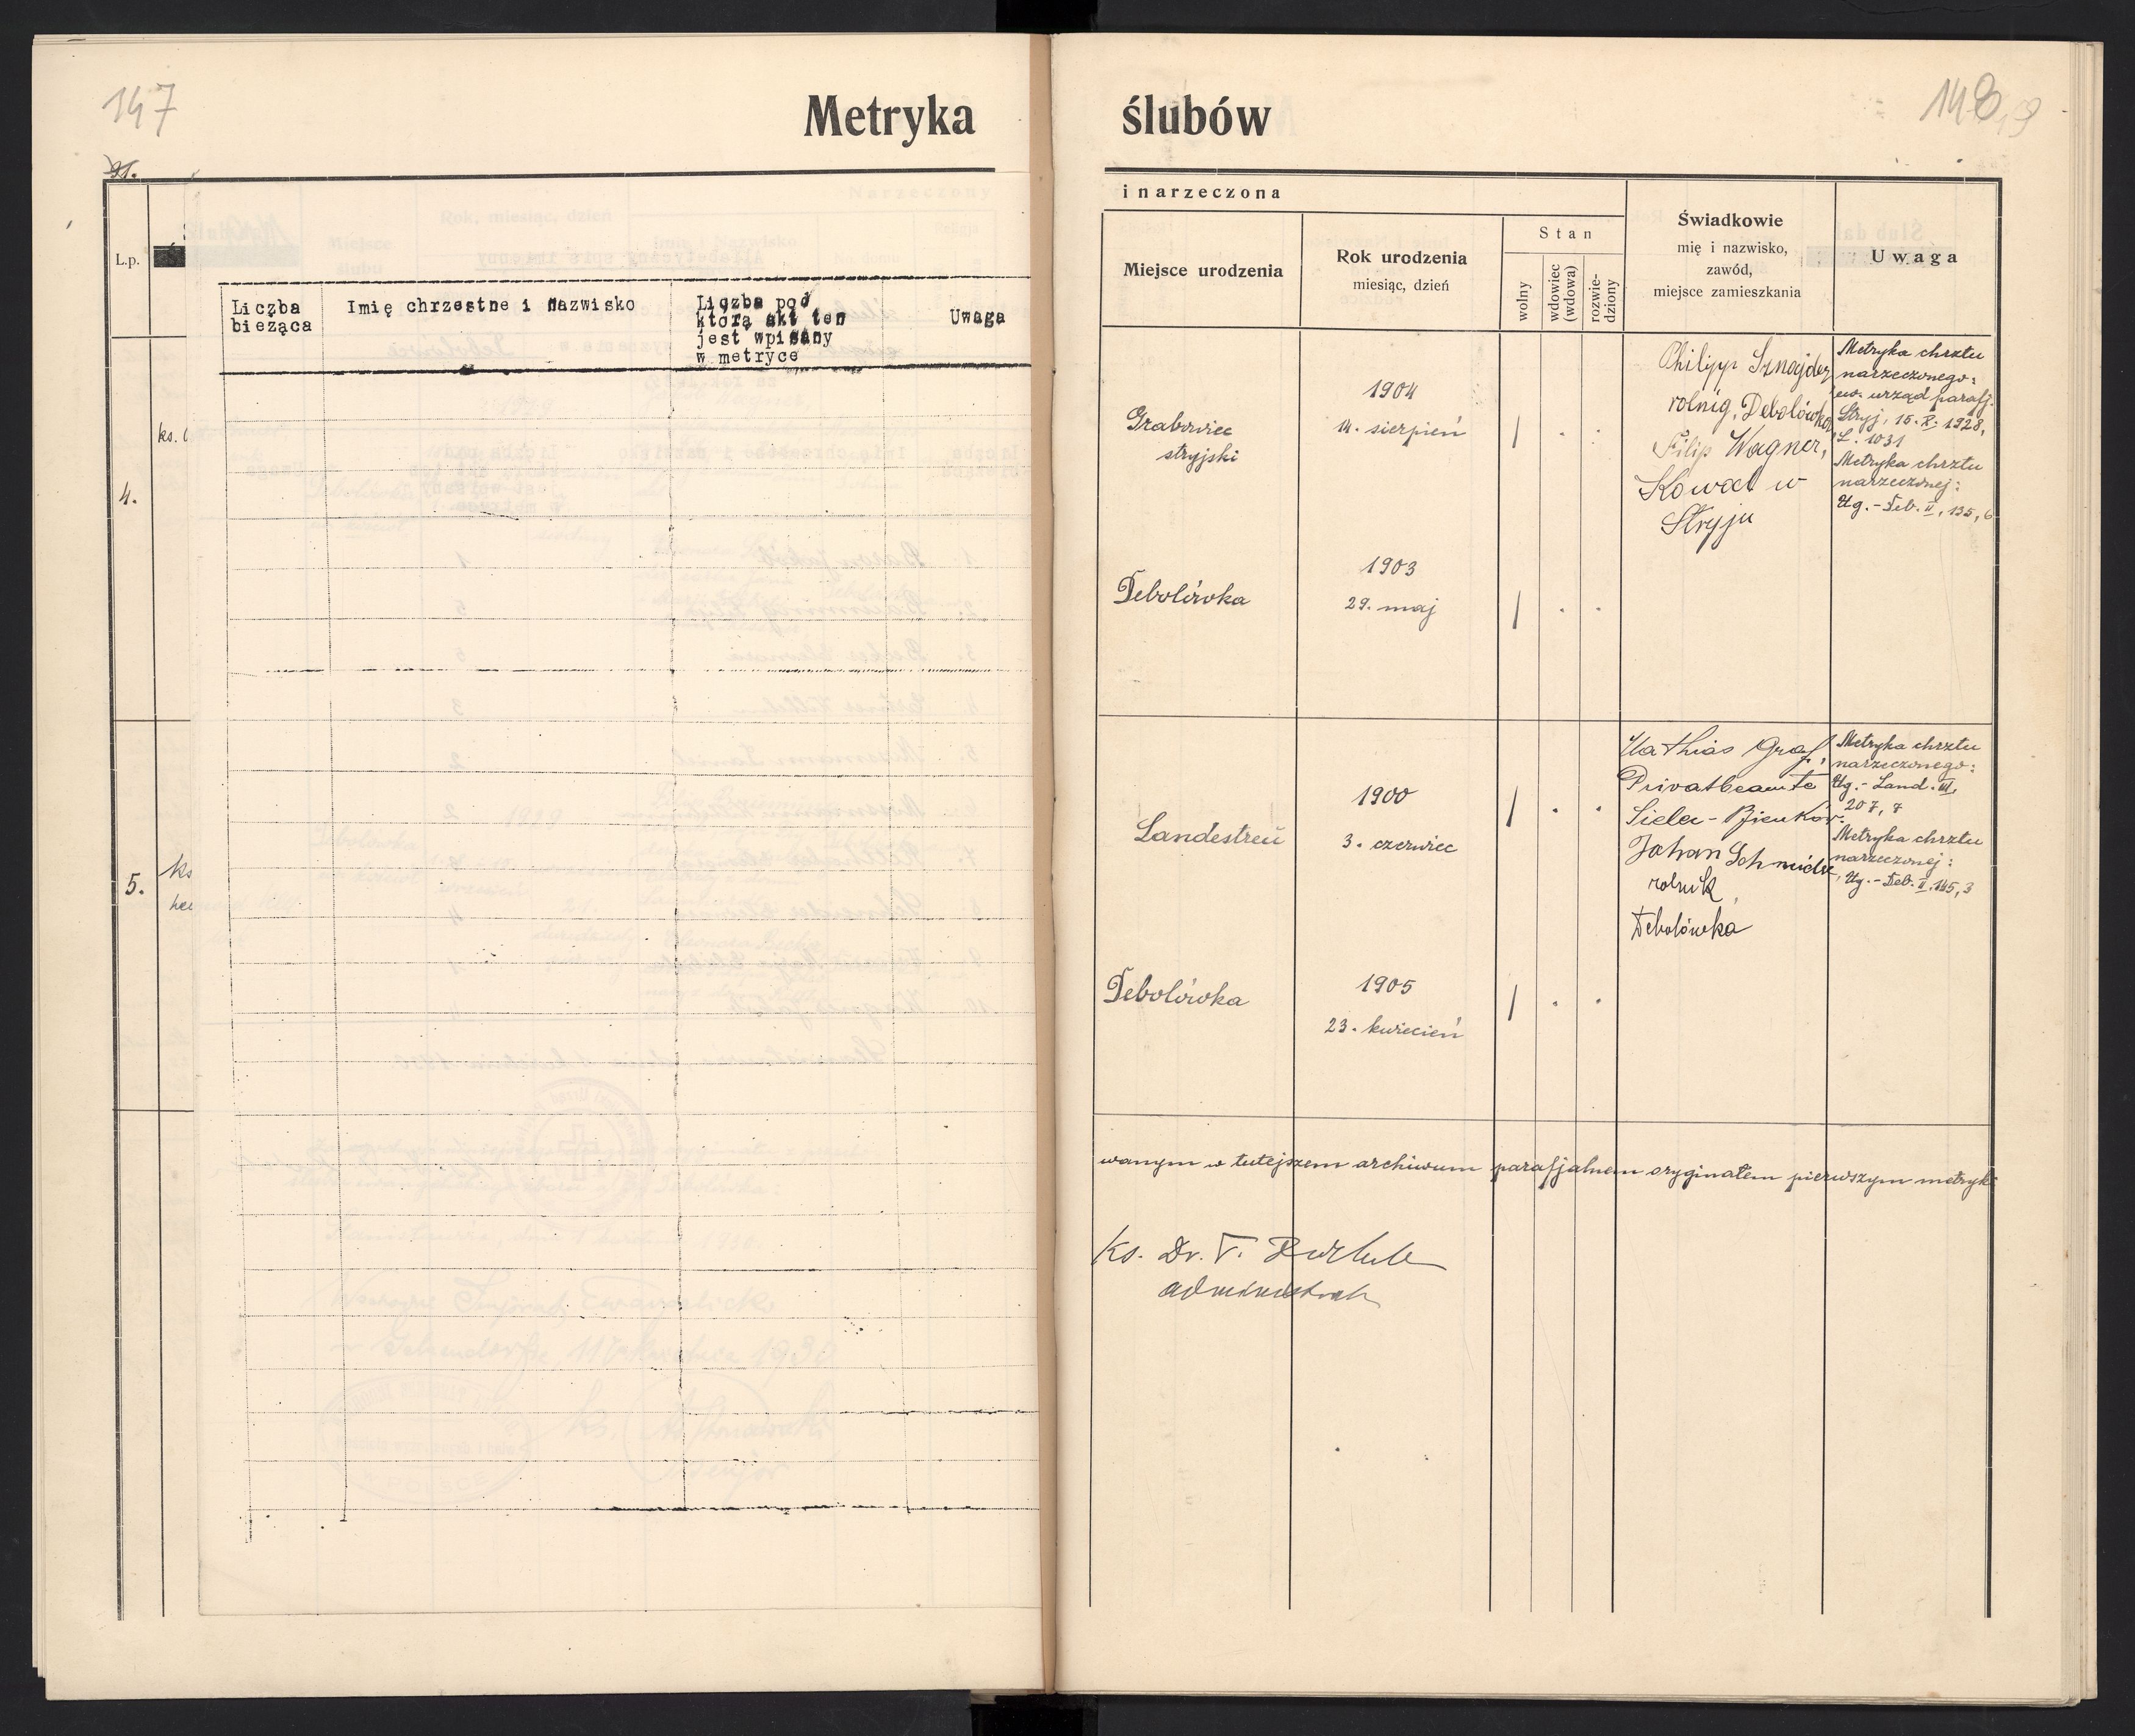 147
Metryka
L.p.
Liczba bieżąca
Imię chrzestne i nazwisko
Liczba pod którą akt ten jest wpisany w metryce
Uwaga
4.
ks.
5.
ks
148
ślubów
i narzeczona
Miejsce urodzenia
Rok urodzenia
miesiąc, dzień
Stan
wolny
wdowiec (wdowa)
rozwiedziony
Świadkowie
mię i nazwisko,
zawód,
miejsce zamieszkania
Uwaga
Grabowiec
stryjski
1904
14. sierpień
Philipp Sznajder
rolnig, Debolówka
Filip Wagner,
Kowal w
Stryju
Metryka chrztu
narzeczonego:
ew. urząd parafj.
Stryj, 15. X. 1928,
L. 1031
Metryka chrztu
narzeczonej:
Ug.-Deb. II, 135, 6
Debolówka
1903
29. maj
Landestreu
1900
3. czerwiec
Mathias Graf,
Privatbeamte
Siela-Bieńków.
Johan Schneider,
rolnik,
Debolówka
Metryka chrztu
narzeczonego:
Ug.-Land. III,
207, 7
Metryka chrztu
narzeczonej:
Ug.-Deb. II. 145, 3
Debolówka
1905
23. kwiecień
wanym w tutejszem archiwum parafjalnem oryginałem pierwszym metryk
Ks. Dr. F.
administrator